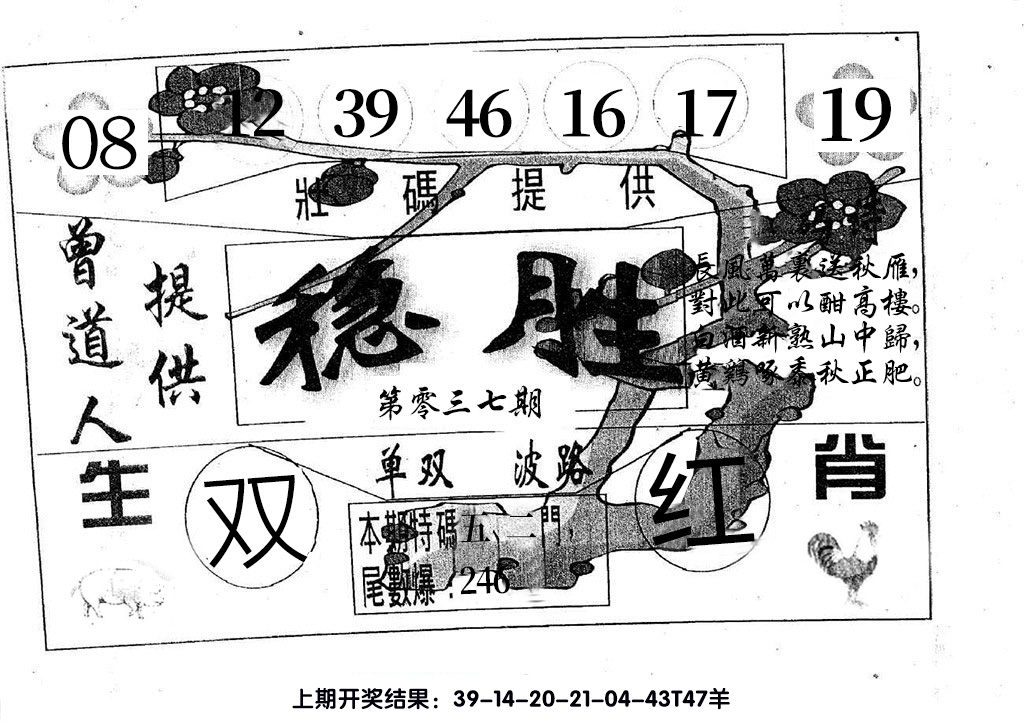 08 12 39 46 16 17 19
壯碼提供
曾道人
提供
稳胜
第零三七期
長風萬裏送秋雁，
對此可以酣高樓。
白酒新熟山中歸，
黃鷄啄黍秋正肥。
单双 波路
生
双
红
肖
本期特碼五、二門，
尾數爆：246
上期开奖结果：39-14-20-21-04-43T47羊